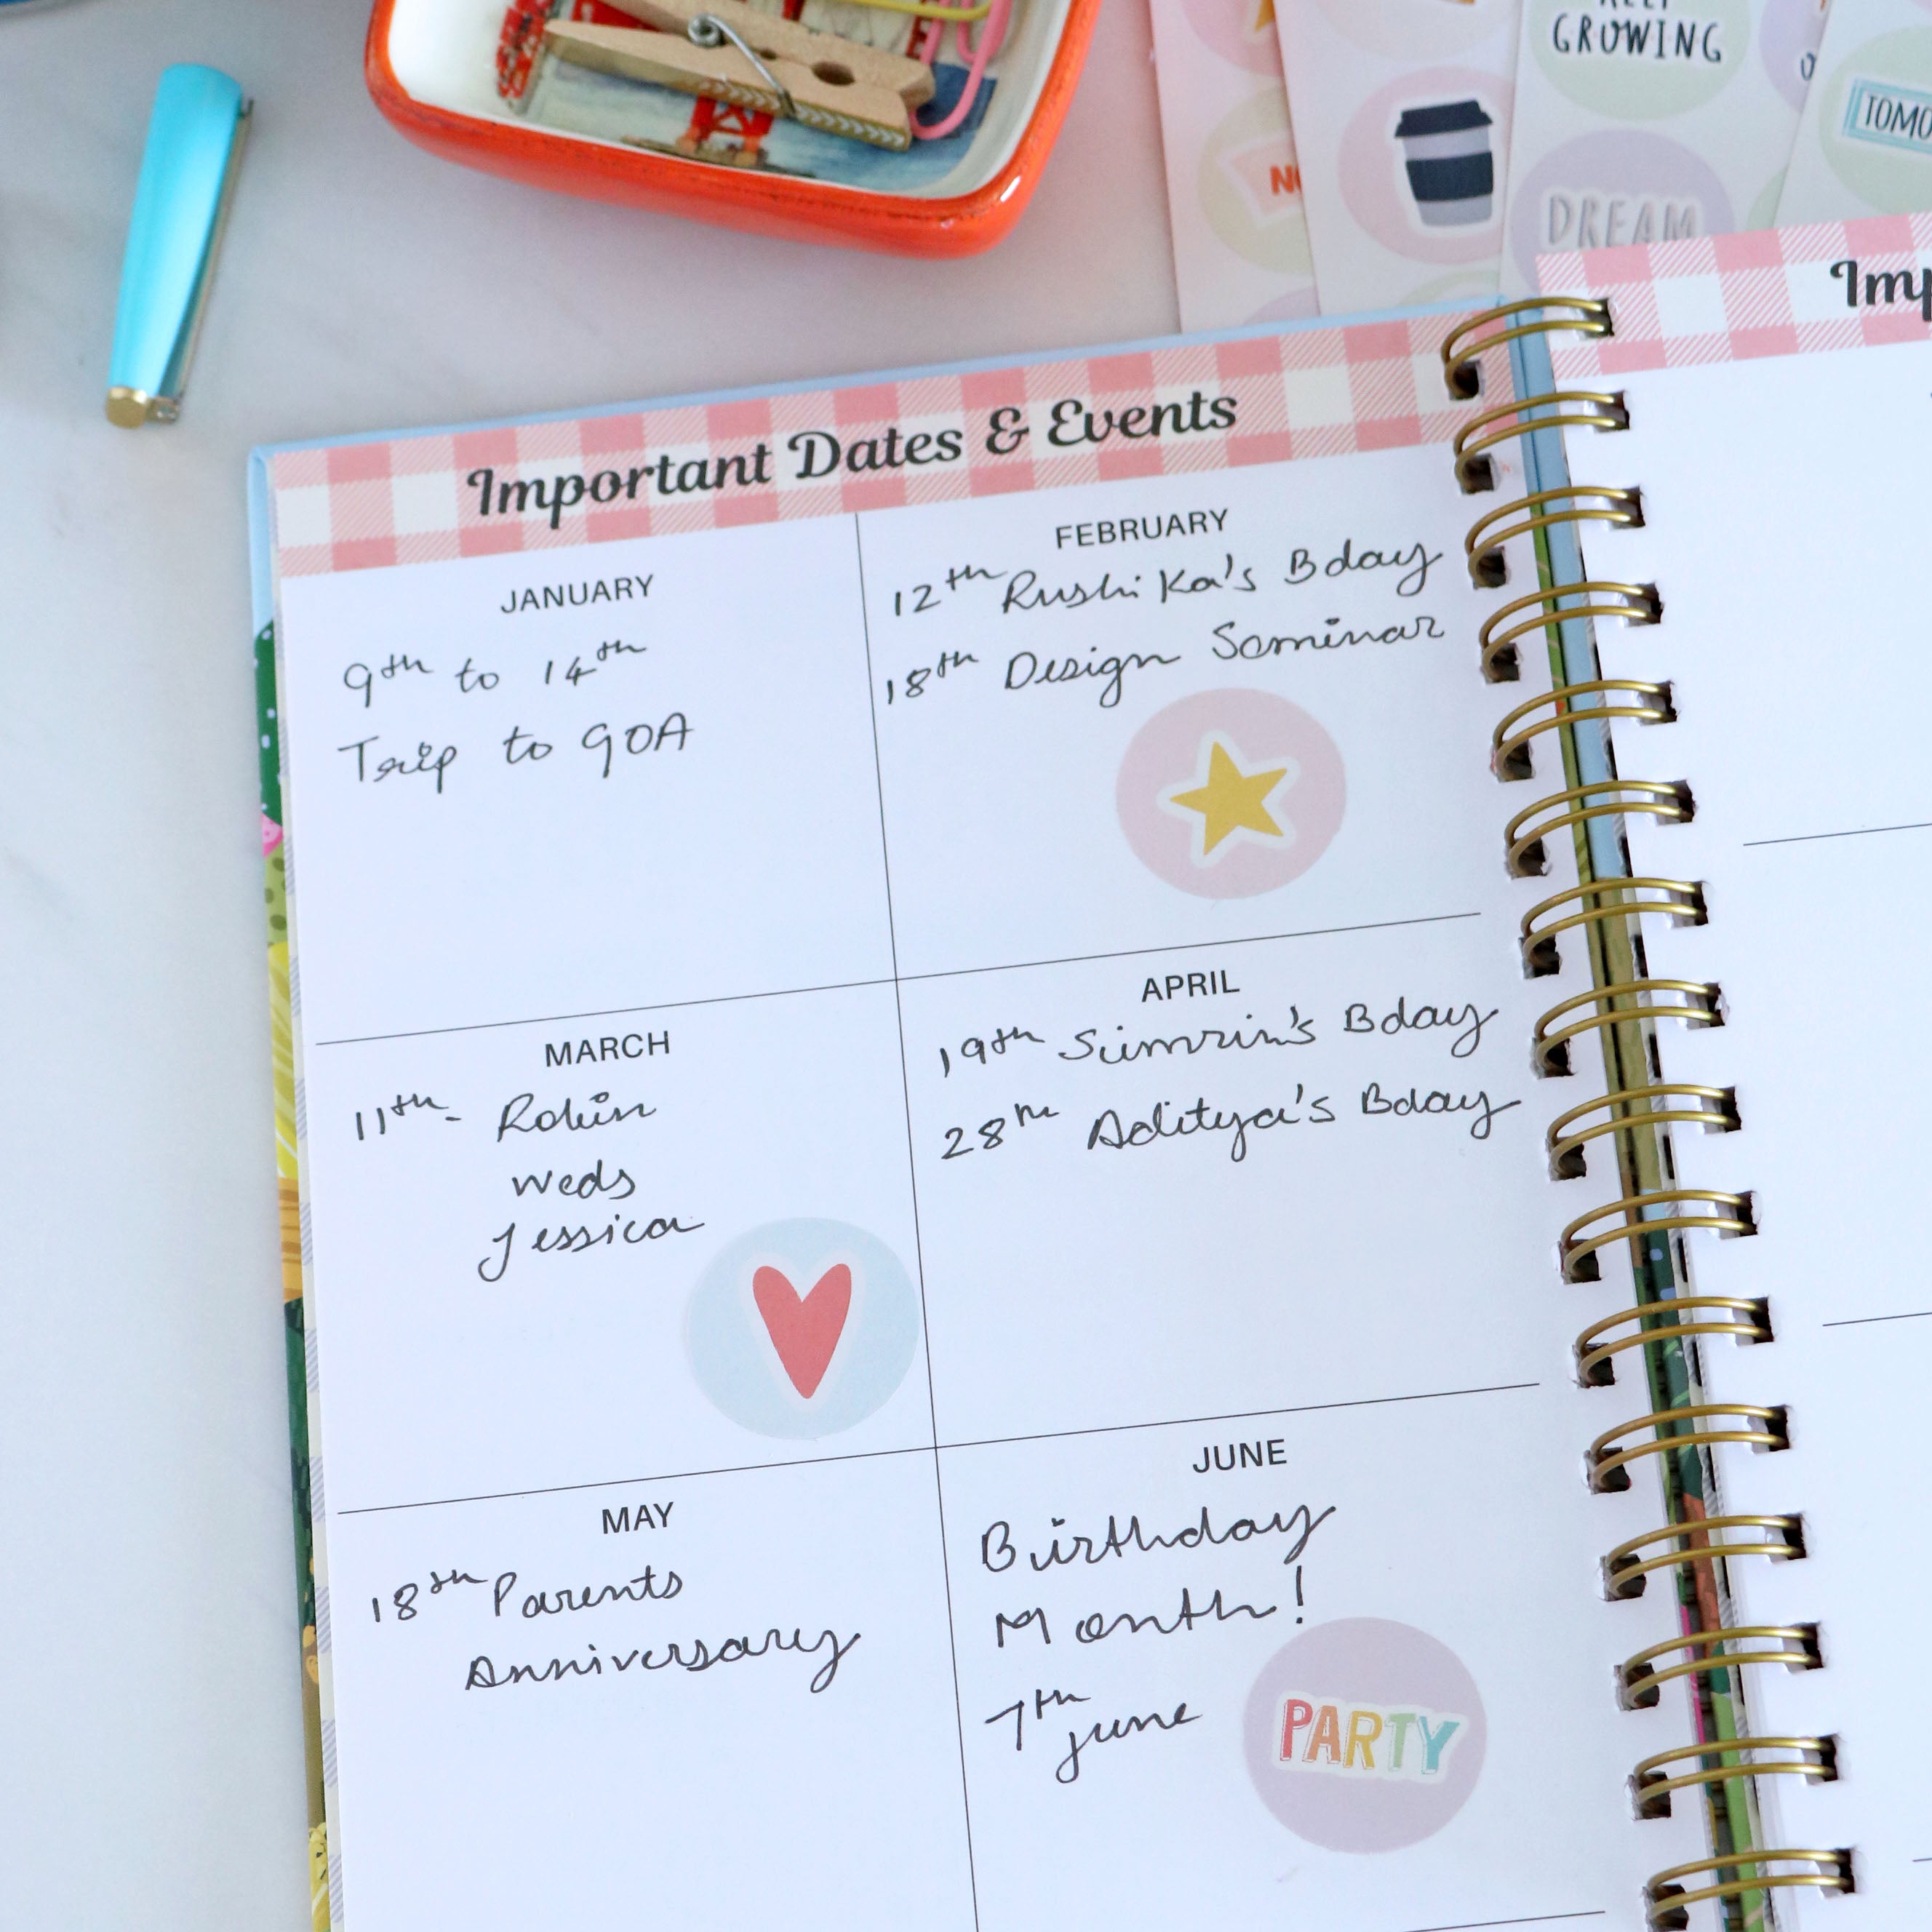 KEEP
GROWING
TOMO
DREAM
Important Dates & Events
JANUARY
9th to 14th
Trip to GOA
FEBRUARY
12th Rushika's Bday
18th Design Seminar
MARCH
11th - Robin
weds
Jessica
APRIL
19th Simrin's Bday
28th Aditya's Bday
MAY
18th Parents
Anniversary
JUNE
Birthday
Month!
7th
june
PARTY
Imp